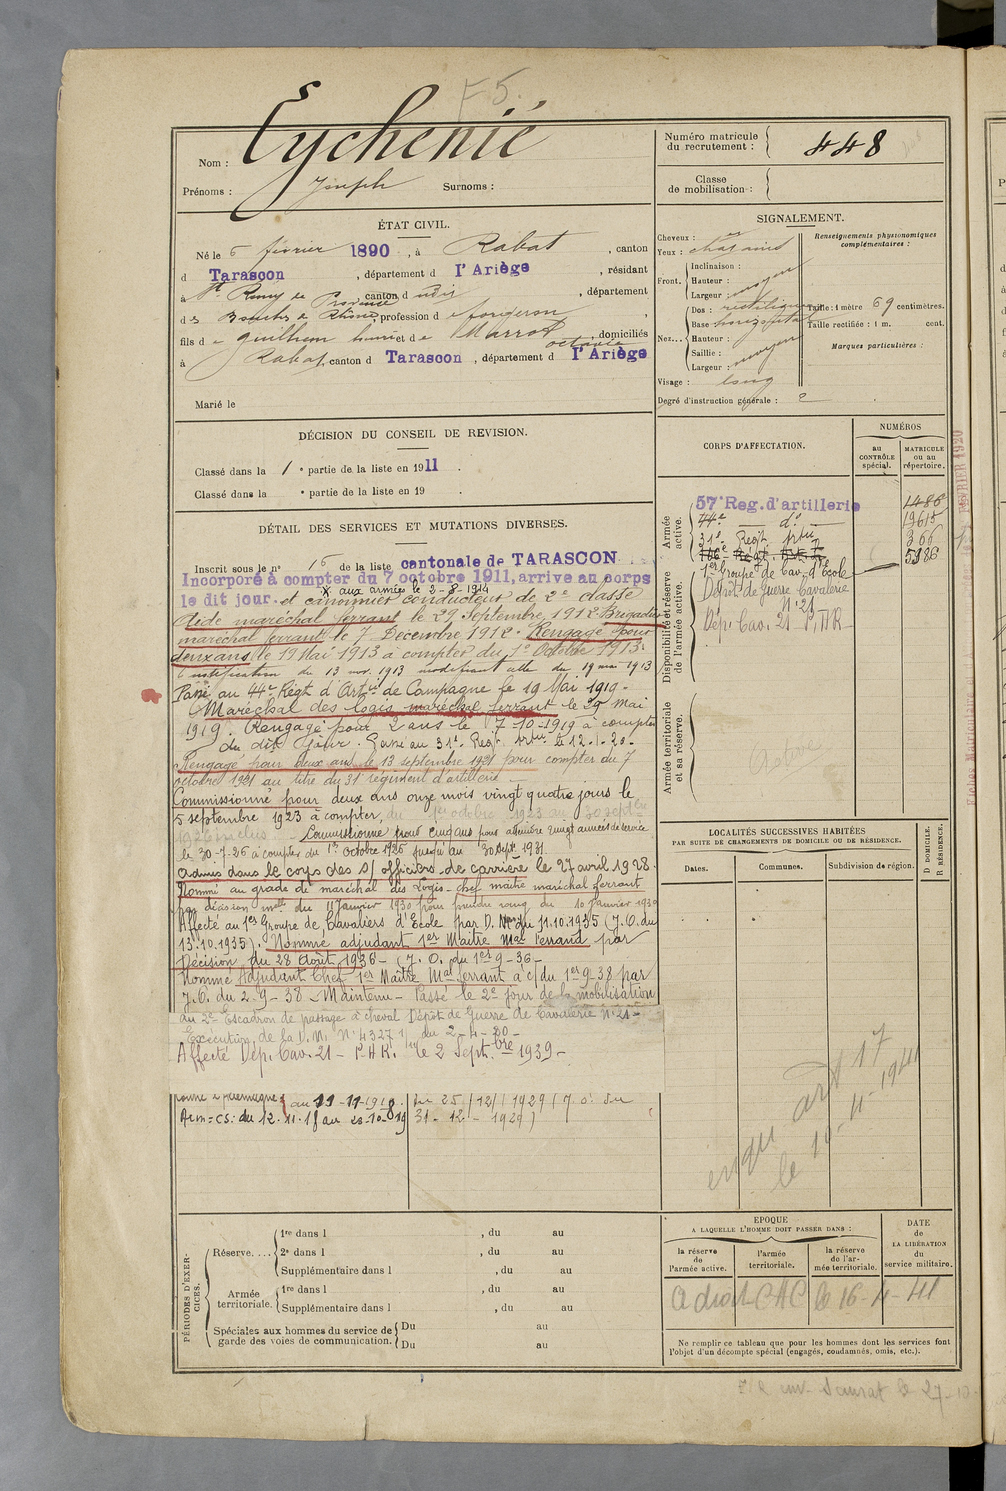 F 5.
Nom : Eychenié
Prénoms : Joseph Surnoms :
Numéro matricule du recrutement : 448
Classe de mobilisation :
ÉTAT CIVIL.
Né le 6 février 1890, à Rabat, canton
d Tarascon, département d l'Ariège, résidant
à St Remy de Provence canton d udis, département
des Bouches du Rhône, profession de forgeron,
fils de guilhem et de Marrot, domiciliés
à Rabat, canton d Tarascon, département d l'Ariège
Marié le
SIGNALEMENT.
Cheveux :
Yeux : chatains
Front. Inclinaison :
Hauteur :
Largeur : moyen
Nez... Dos : rectiligne
Base horizontal
Hauteur :
Saillie :
Largeur : moyen
Visage : long
Degré d'instruction générale : 2
Renseignements physionomiques complémentaires :
Taille : 1 mètre 69 centimètres.
Taille rectifiée : 1 m. cent.
Marques particulières :
DÉCISION DU CONSEIL DE REVISION.
Classé dans la 1e partie de la liste en 1911.
Classé dans la e partie de la liste en 19 .
DÉTAIL DES SERVICES ET MUTATIONS DIVERSES.
Inscrit sous le n° 16 de la liste cantonale de TARASCON
Incorporé à compter du 7 octobre 1911, arrive au corps
x aux armées le 2-8-1914
le dit jour. et canonnier conducteur de 2e classe
Aide maréchal ferrant le 29 septembre 1912 Brigadier
maréchal ferrant le 7 Décembre 1912. Rengagé pour
deux ans le 19 Mai 1913 à compter du 1er Octobre 1913.
notification du 13 nov. 1913 modifiant celle du 19 mai 1913
Passé au 44e Régt d'Artie de Campagne le 19 Mai 1919 -
Maréchal des logis maréchal ferrant le 29 Mai
1919. Rengagé pour 2 ans le 7-10-1919 à compter
du dit jour. Passé au 31e Regt. Artie le 12-1-20-
Rengagé pour deux ans le 13 septembre 1921 pour compter du 7
octobre 1921 au titre du 31e régiment d'artillerie -
Commissionné pour deux ans onze mois vingt quatre jours le
5 septembre 1923 à compter, du 1er octobre 1923 au 30 septbre
1926 inclus - Commissionné pour cinq ans pour atteindre vingt années de service
le 30-7-26 à compter du 1er Octobre 1926 jusqu'au 30 Sept. 1931
Admis dans le corps des s/officiers de carrière le 27 avril 1928.
Nommé au grade de maréchal des Logis-chef maître maréchal ferrant
par décision mlle du 11 Janvier 1930 pour prendre rang du 10 Janvier 1930
Affecté au 1er Groupe de Cavaliers d'Ecole par D. Mlle du 11.10.1935 (J.O. du
13.10.1935). Nommé adjudant 1er Maître Mal ferrand par
Décision du 28 Août 1936 - (J.O. du 1er 9-36-
Nommé Adjudant Chef 1er Maître Mal ferrant à c/du 1er 9-38 par
J.O. du 2-9-38 - Maintenu - Passé le 2e jour de la mobilisation
au 2e Escadron de passage à cheval Dépôt de Guerre de Cavalerie N° 21-
Exécution de la D.M. N° 4327 du 2-4-30-
Affecté Dép. Cav. 21 - P.H.R. le 2 Septbre 1939 -
au 11-11-1918
Arm=cs: du 12.11.18 au 23-10-19
du 25/12/1929 (J.O. du
31-12-1929)
CORPS D'AFFECTATION.
NUMÉROS
au CONTRÔLE spécial.
MATRICULE ou au répertoire.
Armée active.
57e Reg. d'artillerie 1486
44e d° 19615
31e Regt Artie 366
5386
1er Groupe de Cav. d'Ecole
Disponibilité et réserve de l'armée active.
Dépôt de Guerre Cavalerie
N° 21
Dép. Cav. 21 P.H.R
Armée territoriale et sa réserve.
Fiches Matricules
FÉVRIER 1920
LOCALITÉS SUCCESSIVES HABITÉES
PAR SUITE DE CHANGEMENTS DE DOMICILE OU DE RÉSIDENCE.
Dates. Communes. Subdivision de région.
D DOMICILE. R RÉSIDENCE.
art 17
le 10-11-1941
PÉRIODES D'EXERCICES.
Réserve.... 1re dans l , du au
2e dans l , du au
Supplémentaire dans l , du au
Armée territoriale. 1re dans l , du au
Supplémentaire dans l , du au
Spéciales aux hommes du service de garde des voies de communication. Du au
Du au
EPOQUE
A LAQUELLE L'HOMME DOIT PASSER DANS :
la réserve de l'armée active.
l'armée territoriale.
la réserve de l'armée territoriale.
DATE de LA LIBÉRATION du service militaire.
a droit CAC le 16-4-41
Ne remplir ce tableau que pour les hommes dont les services font
l'objet d'un décompte spécial (engagés, condamnés, omis, etc.).